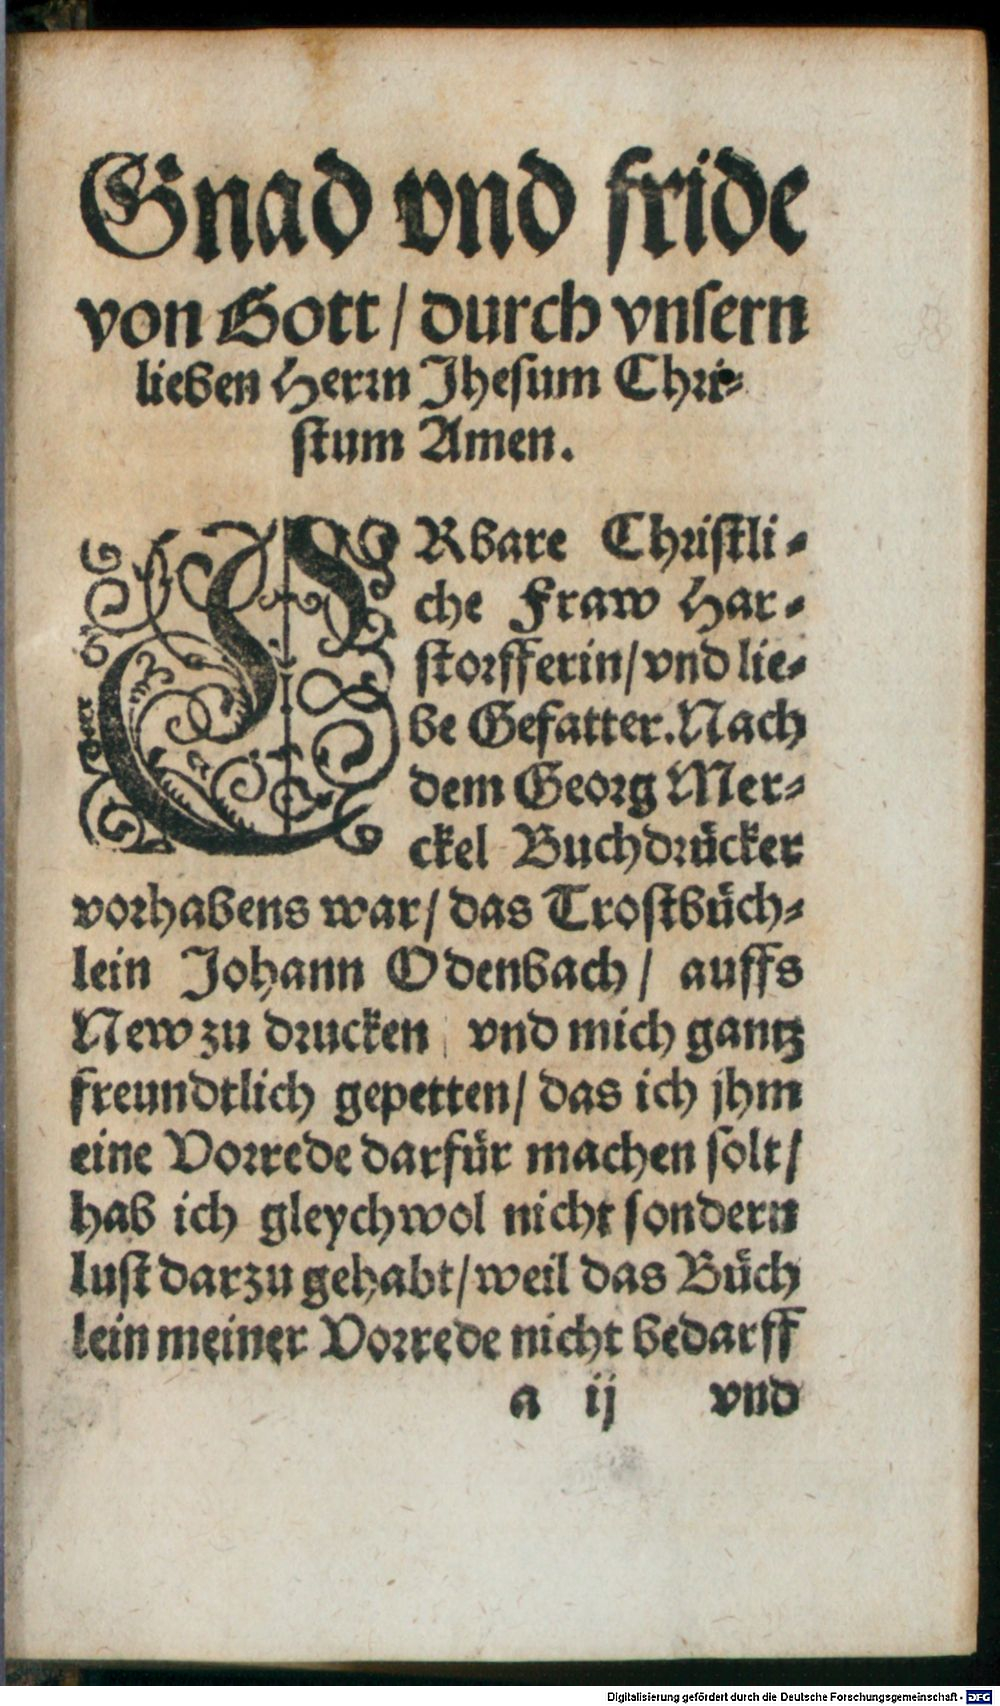 Gnad vnd fride
von Gott / durch vnsern
lieben Herrn Jhesum Chri-
stum Amen.
ERbare Christli-
che Fraw Har-
storfferin / vnd lie-
be Gefatter. Nach
dem Georg Mer-
ckel Buchdrücker
vorhabens war / das Trostbüch-
lein Johann Odenbach / auffs
New zu drucken / vnd mich gantz
freundtlich gepetten / das ich jhm
eine Vorrede darfür machen solt /
hab ich gleychwol nicht sondern
lust darzu gehabt / weil das Büch
lein meiner Vorrede nicht bedarff
a ij vnd
Digitalisierung gefördert durch die Deutsche Forschungsgemeinschaft - DFG